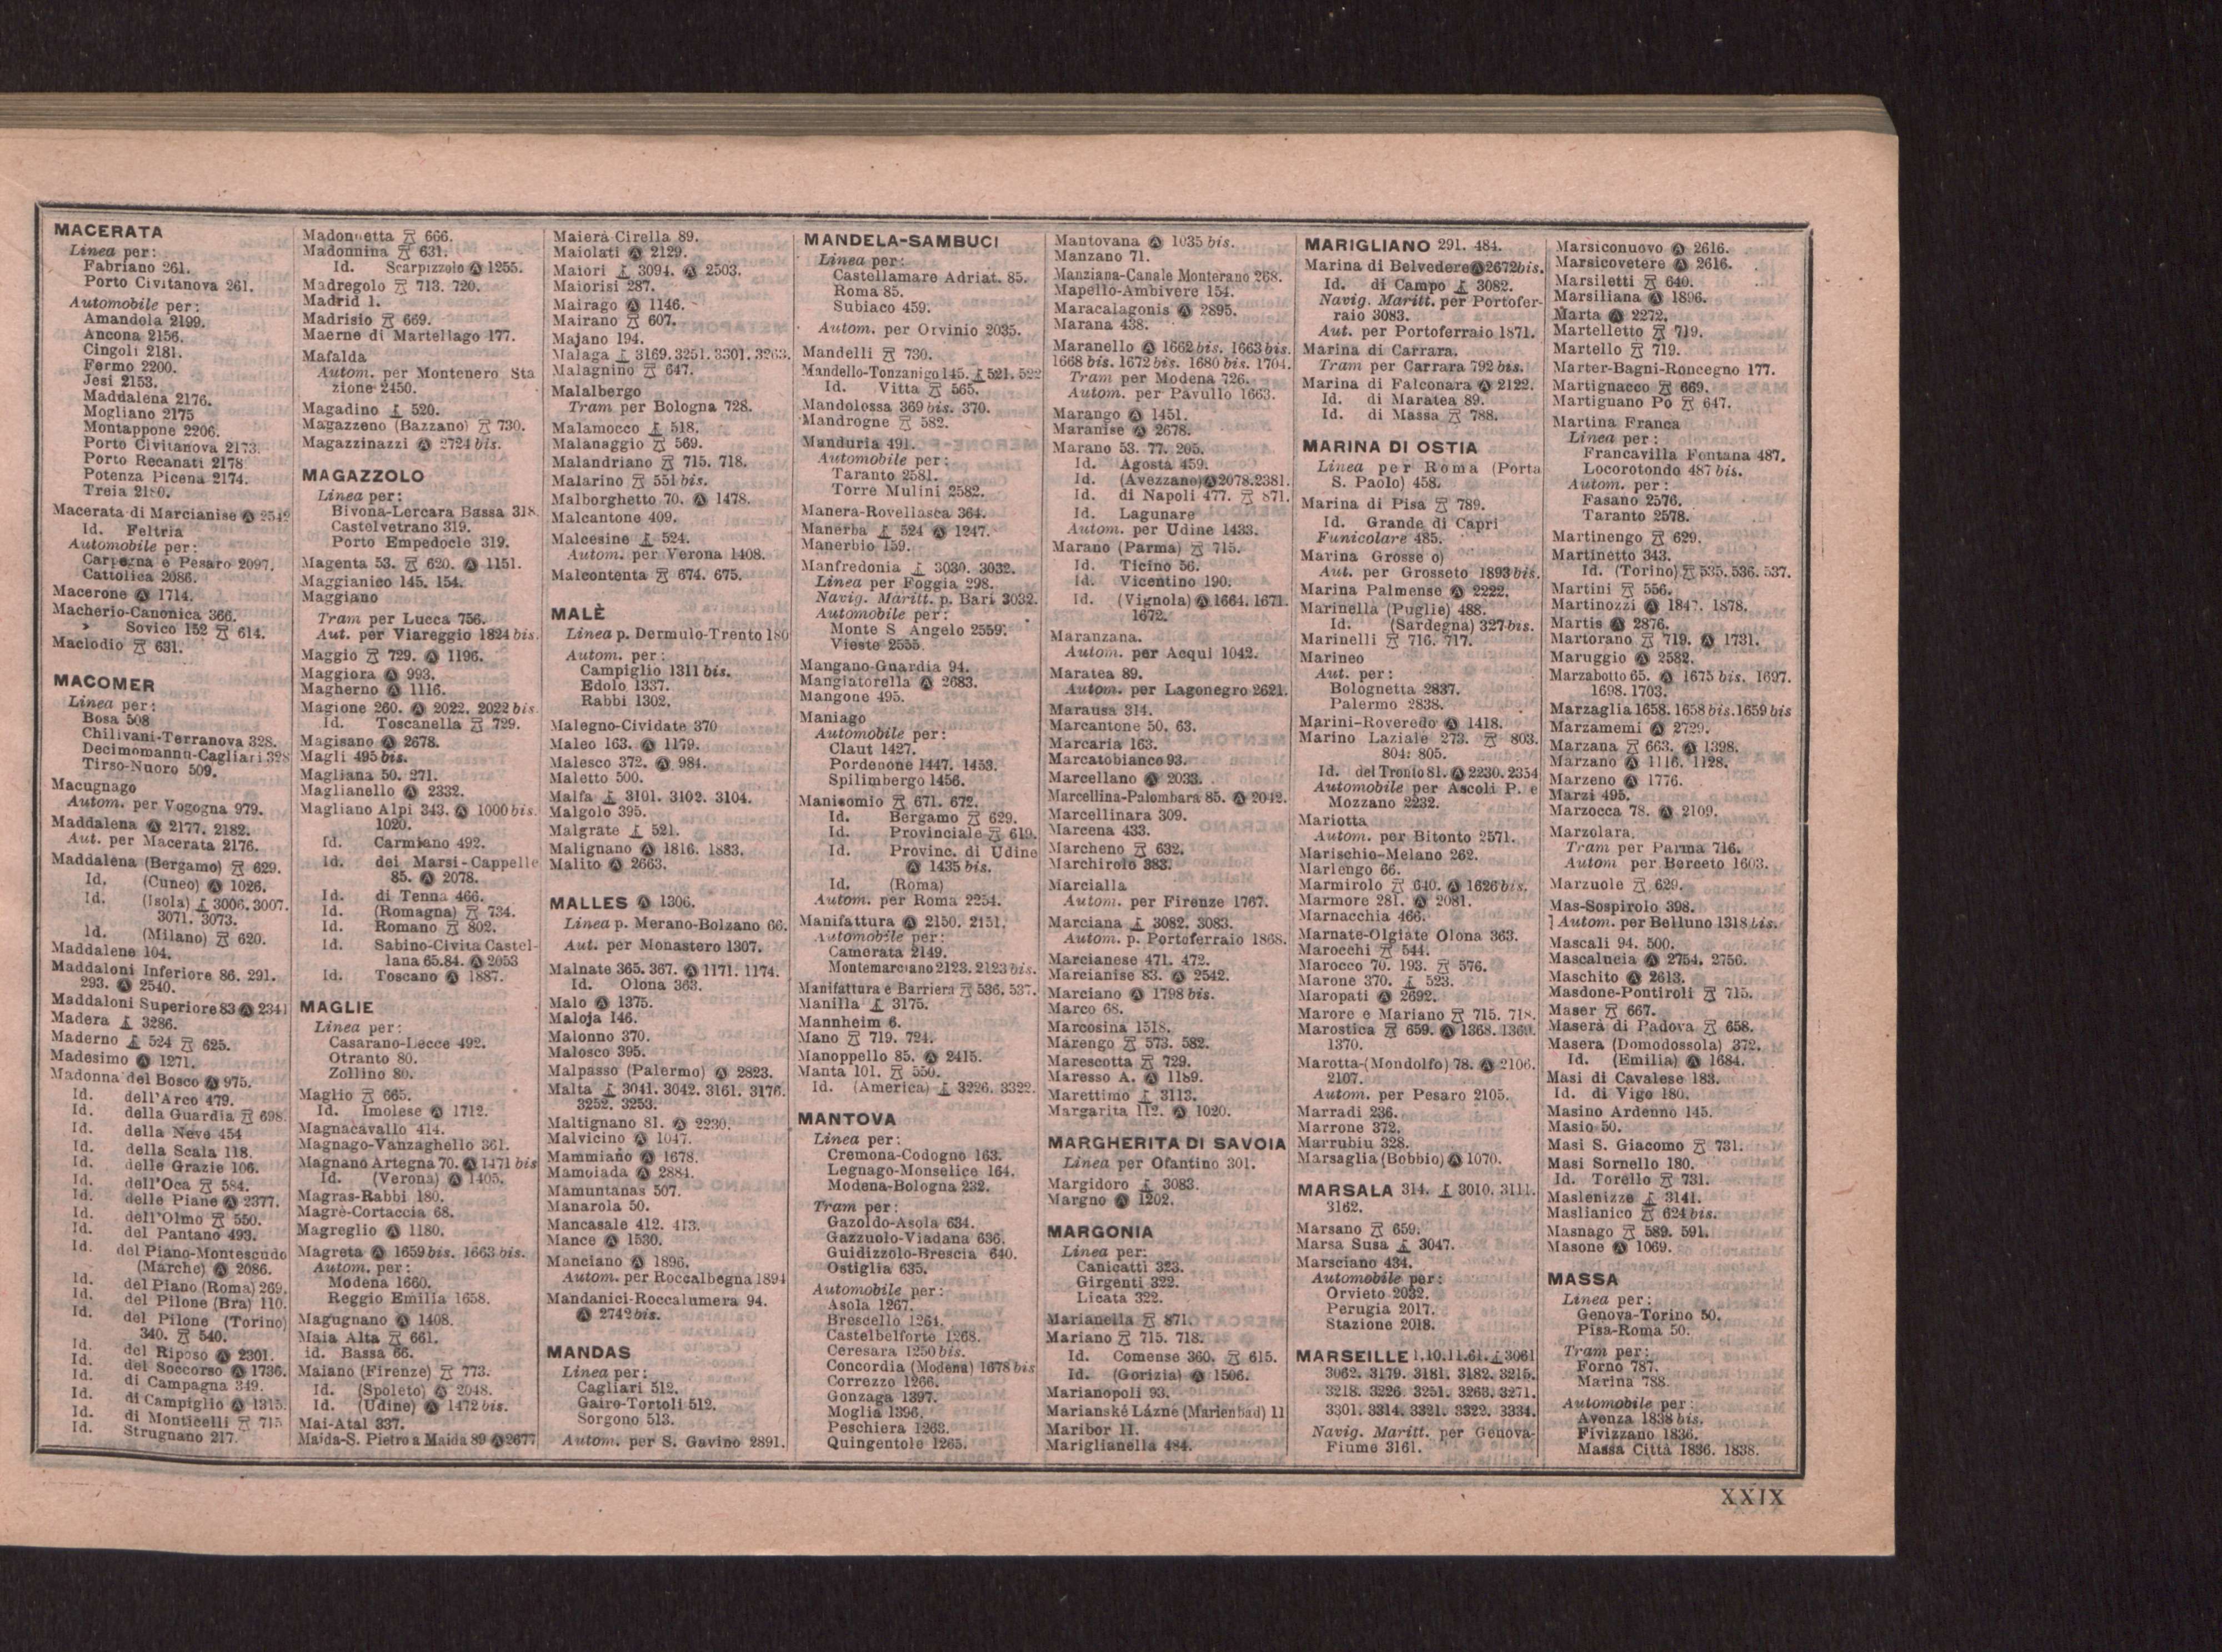 MACERATA
Linea per:
Fabriano 261.
Porto Civitanova 261.
Automobile per:
Amandola 2199.
Ancona 2156.
Cingoli 2181.
Fermo 2200.
Jesi 2153.
Maddalena 2176.
Mogliano 2175
Montappone 2206.
Porto Civitanova 2173.
Porto Recanati 2178
Potenza Picena 2174.
Treia 2180.
Macerata di Marcianise Ⓐ 2542
Id. Feltria
Automobile per:
Carpegna e Pesaro 2097.
Cattolica 2086.
Macerone Ⓐ 1714.
Macherio-Canonica 366.
» Sovico 152 614.
Maclodio 631.
MACOMER
Linea per:
Bosa 508
Chilivani-Terranova 328.
Decimomannu-Cagliari 328
Tirso-Nuoro 509.
Macugnago
Autom. per Vogogna 979.
Maddalena Ⓐ 2177. 2182.
Aut. per Macerata 2176.
Maddalena (Bergamo) 629.
Id. (Cuneo) Ⓐ 1026.
Id. (Isola) 3006. 3007.
3071. 3073.
Id. (Milano) 620.
Maddalene 104.
Maddaloni Inferiore 86. 291.
293. Ⓐ 2540.
Maddaloni Superiore 83 Ⓐ 2341
Madera 3286.
Maderno 524 625.
Madesimo Ⓐ 1271.
Madonna del Bosco Ⓐ 975.
Id. dell'Arco 479.
Id. della Guardia 698.
Id. della Neve 454
Id. della Scala 118.
Id. delle Grazie 106.
Id. dell'Oca 584.
Id. delle Piane Ⓐ 2377.
Id. dell'Olmo 550.
Id. del Pantano 493.
Id. del Piano-Montescudo
(Marche) Ⓐ 2086.
Id. del Piano (Roma) 269.
Id. del Pilone (Bra) 110.
Id. del Pilone (Torino)
340. 540.
Id. del Riposo Ⓐ 2301.
Id. del Soccorso Ⓐ 1736.
Id. di Campagna 349.
Id. di Campiglio Ⓐ 1315.
Id. di Monticelli 715
Id. Strugnano 217.
Madonnetta 666.
Madonnina 631.
Id. Scarpizzolo Ⓐ 1255.
Madregolo 713. 720.
Madrid 1.
Madrisio 669.
Maerne di Martellago 177.
Mafalda
Autom. per Montenero Sta
zione 2450.
Magadino 520.
Magazzeno (Bazzano) 730.
Magazzinazzi Ⓐ 2724 bis.
MAGAZZOLO
Linea per:
Bivona-Lercara Bassa 318.
Castelvetrano 319.
Porto Empedocle 319.
Magenta 53. 620. Ⓐ 1151.
Maggianico 145. 154.
Maggiano
Tram per Lucca 756.
Aut. per Viareggio 1824 bis.
Maggio 729. Ⓐ 1196.
Maggiora Ⓐ 993.
Magherno Ⓐ 1116.
Magione 260. Ⓐ 2022. 2022 bis
Id. Toscanella 729.
Magisano Ⓐ 2678.
Magli 495 bis.
Magliana 50. 271.
Maglianello Ⓐ 2332.
Magliano Alpi 343. Ⓐ 1000 bis.
1020.
Id. Carmiano 492.
Id. dei Marsi-Cappelle
85. Ⓐ 2078.
Id. di Tenna 466.
Id. (Romagna) 734.
Id. Romano 802.
Id. Sabino-Civita Castel-
lana 65.84. Ⓐ 2053
Id. Toscano Ⓐ 1887.
MAGLIE
Linea per:
Casarano-Lecce 492.
Otranto 80.
Zollino 80.
Maglio 665.
Id. Imolese Ⓐ 1712.
Magnacavallo 414.
Magnago-Vanzaghello 361.
Magnano Artegna 70. Ⓐ 1471 bis
Id. (Verona) Ⓐ 1405.
Magras-Rabbi 180.
Magrè-Cortaccia 68.
Magreglio Ⓐ 1180.
Magreta Ⓐ 1659 bis. 1663 bis.
Autom. per:
Modena 1660.
Reggio Emilia 1658.
Magugnano Ⓐ 1408.
Maia Alta 661.
id. Bassa 66.
Maiano (Firenze) 773.
Id. (Spoleto) Ⓐ 2048.
Id. (Udine) Ⓐ 1472 bis.
Mai-Atal 337.
Maida-S. Pietro a Maida 89 Ⓐ 2677
Maierà Cirella 89.
Maiolati Ⓐ 2129.
Maiori 3094. Ⓐ 2503.
Maiorisi 287.
Mairago Ⓐ 1146.
Mairano 607.
Majano 194.
Malaga 3169. 3251. 3301. 3263.
Malagnino 647.
Malalbergo
Tram per Bologna 728.
Malamocco 518.
Malanaggio 569.
Malandriano 715. 718.
Malarino 551 bis.
Malborghetto 70. Ⓐ 1478.
Malcantone 409.
Malcesine 524.
Autom. per Verona 1408.
Malcontenta 674. 675.
MALÈ
Linea p. Dermulo-Trento 180
Autom. per:
Campiglio 1311 bis.
Edolo 1337.
Rabbi 1302.
Malegno-Cividate 370
Maleo 163. Ⓐ 1179.
Malesco 372. Ⓐ 984.
Maletto 500.
Malfa 3101. 3102. 3104.
Malgolo 395.
Malgrate 521.
Malignano Ⓐ 1816. 1883.
Malito Ⓐ 2663.
MALLES Ⓐ 1306.
Linea p. Merano-Bolzano 66.
Aut. per Monastero 1307.
Malnate 365. 367. Ⓐ 1171. 1174.
Id. Olona 363.
Malo Ⓐ 1375.
Maloja 146.
Malonno 370.
Malosco 395.
Malpasso (Palermo) Ⓐ 2823.
Malta 3041. 3042. 3161. 3176.
3252. 3253.
Maltignano 81. Ⓐ 2230.
Malvicino Ⓐ 1047.
Mammiano Ⓐ 1678.
Mamoiada Ⓐ 2884.
Mamuntanas 507.
Manarola 50.
Mancasale 412. 413.
Mance Ⓐ 1530.
Manciano Ⓐ 1896.
Autom. per Roccalbegna 1894
Mandanici-Roccalumera 94.
Ⓐ 2742 bis.
MANDAS
Linea per:
Cagliari 512.
Gairo-Tortoli 512.
Sorgono 513.
Autom. per S. Gavino 2891.
MANDELA-SAMBUCI
Linea per:
Castellamare Adriat. 85.
Roma 85.
Subiaco 459.
Autom. per Orvinio 2035.
Mandelli 730.
Mandello-Tonzanigo 145. 521. 522
Id. Vitta 565.
Mandolossa 369 bis. 370.
Mandrogne 582.
Manduria 491.
Automobile per:
Taranto 2581.
Torre Mulini 2582.
Manera-Rovellasca 364.
Manerba 524 Ⓐ 1247.
Manerbio 159.
Manfredonia 3030. 3032.
Linea per Foggia 298.
Navig. Maritt. p. Bari 3032.
Automobile per:
Monte S Angelo 2559.
Vieste 2555.
Mangano-Guardia 94.
Mangiatorella Ⓐ 2683.
Mangone 495.
Maniago
Automobile per:
Claut 1427.
Pordenone 1447. 1453.
Spilimbergo 1456.
Manicomio 671. 672.
Id. Bergamo 629.
Id. Provinciale 619.
Id. Provinc. di Udine
Ⓐ 1435 bis.
Id. (Roma)
Autom. per Roma 2254.
Manifattura Ⓐ 2150. 2151.
Automobile per:
Camerata 2149.
Montemarciano 2123. 2123 bis.
Manifattura e Barriera 536. 537.
Manilla 3175.
Mannheim 6.
Mano 719. 724.
Manoppello 85. Ⓐ 2415.
Manta 101. 550.
Id. (America) 3226. 3322.
MANTOVA
Linea per:
Cremona-Codogno 163.
Legnago-Monselice 164.
Modena-Bologna 232.
Tram per:
Gazoldo-Asola 634.
Gazzuolo-Viadana 636.
Guidizzolo-Brescia 640.
Ostiglia 635.
Automobile per:
Asola 1267.
Brescello 1264.
Castelbelforte 1268.
Ceresara 1250 bis.
Concordia (Modena) 1678 bis
Correzzo 1266.
Gonzaga 1397.
Moglia 1396.
Peschiera 1263.
Quingentole 1265.
Mantovana Ⓐ 1035 bis.
Manzano 71.
Manziana-Canale Monterano 268.
Mapello-Ambivere 154.
Maracalagonis Ⓐ 2895.
Marana 438.
Maranello Ⓐ 1662 bis. 1663 bis.
1668 bis. 1672 bis. 1680 bis. 1704.
Tram per Modena 726.
Autom. per Pavullo 1663.
Marango Ⓐ 1451.
Maranise Ⓐ 2678.
Marano 53. 77. 205.
Id. Agosta 459.
Id. (Avezzano) Ⓐ 2078. 2381.
Id. di Napoli 477. 871.
Id. Lagunare
Autom. per Udine 1433.
Marano (Parma) 715.
Id. Ticino 56.
Id. Vicentino 190.
Id. (Vignola) Ⓐ 1664. 1671.
1672.
Maranzana.
Autom. per Acqui 1042.
Maratea 89.
Autom. per Lagonegro 2621.
Marausa 314.
Marcantone 50. 63.
Marcaria 163.
Marcatobianco 93.
Marcellano Ⓐ 2033.
Marcellina-Palombara 85. Ⓐ 2042.
Marcellinara 309.
Marcena 433.
Marcheno 632.
Marchirolo 383.
Marcialla
Autom. per Firenze 1767.
Marciana 3082. 3083.
Autom. p. Portoferraio 1868.
Marcianese 471. 472.
Marcianise 83. Ⓐ 2542.
Marciano Ⓐ 1798 bis.
Marco 68.
Marcosina 1518.
Marengo 573. 582.
Marescotta 729.
Maresso A. Ⓐ 1189.
Marettimo 3113.
Margarita 112. Ⓐ 1020.
MARGHERITA DI SAVOIA
Linea per Ofantino 301.
Margidoro 3083.
Margno Ⓐ 1202.
MARGONIA
Linea per:
Canicattì 323.
Girgenti 322.
Licata 322.
Marianella 871.
Mariano 715. 718.
Id. Comense 360. 615.
Id. (Gorizia) Ⓐ 1506.
Marianopoli 93.
Marianské Lázne (Marienbad) 11
Maribor II.
Mariglianella 484.
MARIGLIANO 291. 484.
Marina di Belvedere Ⓐ 2672 bis.
Id. di Campo 3082.
Navig. Maritt. per Portofer-
raio 3083.
Aut. per Portoferraio 1871.
Marina di Carrara.
Tram per Carrara 792 bis.
Marina di Falconara Ⓐ 2122.
Id. di Maratea 89.
Id. di Massa 788.
MARINA DI OSTIA
Linea per Roma (Porta
S. Paolo) 458.
Marina di Pisa 789.
Id. Grande di Capri
Funicolare 485.
Marina Grosse o)
Aut. per Grosseto 1893 bis.
Marina Palmense Ⓐ 2222.
Marinella (Puglie) 488.
Id. (Sardegna) 327 bis.
Marinelli 716. 717.
Marineo
Aut. per:
Bolognetta 2837.
Palermo 2838.
Marini-Roveredo Ⓐ 1418.
Marino Laziale 273. 803.
804: 805.
Id. del Tronto 81. Ⓐ 2230. 2354
Automobile per Ascoli P. e
Mozzano 2232.
Mariotta
Autom. per Bitonto 2571.
Marischio-Melano 262.
Marlengo 66.
Marmirolo 640. Ⓐ 1626 bis.
Marmore 281. Ⓐ 2081.
Marnacchia 466.
Marnate-Olgiate Olona 363.
Marocchi 544.
Marocco 70. 193. 576.
Marone 370. 523.
Maropati Ⓐ 2692.
Marore e Mariano 715. 718.
Marostica 659. Ⓐ 1368. 1369.
1370.
Marotta-(Mondolfo) 78. Ⓐ 2106.
2107.
Autom. per Pesaro 2105.
Marradi 236.
Marrone 372.
Marrubiu 328.
Marsaglia (Bobbio) Ⓐ 1070.
MARSALA 314. 3010. 3111.
3162.
Marsano 659.
Marsa Susa 3047.
Marsciano 434.
Automobile per:
Orvieto 2032.
Perugia 2017.
Stazione 2018.
MARSEILLE 1.10.11.61. 3061
3062. 3179. 3181. 3182. 3215.
3218. 3226. 3251. 3263. 3271.
3301. 3314. 3321. 3322. 3334.
Navig. Maritt. per Genova-
Fiume 3161.
Marsiconuovo Ⓐ 2616.
Marsicovetere Ⓐ 2616.
Marsiletti 640.
Marsiliana Ⓐ 1896.
Marta Ⓐ 2272.
Martelletto 719.
Martello 719.
Marter-Bagni-Roncegno 177.
Martignacco 669.
Martignano Po 647.
Martina Franca
Linea per:
Francavilla Fontana 487.
Locorotondo 487 bis.
Autom. per:
Fasano 2576.
Taranto 2578.
Martinengo 629.
Martinetto 343.
Id. (Torino) 535. 536. 537.
Martini 556.
Martinozzi Ⓐ 1847. 1878.
Martis Ⓐ 2876.
Martorano 719. Ⓐ 1731.
Maruggio Ⓐ 2582.
Marzabotto 65. Ⓐ 1675 bis. 1697.
1698. 1703.
Marzaglia 1658. 1658 bis. 1659 bis
Marzamemi Ⓐ 2729.
Marzana 663. Ⓐ 1398.
Marzano Ⓐ 1116. 1128.
Marzeno Ⓐ 1776.
Marzi 495.
Marzocca 78. Ⓐ 2109.
Marzolara.
Tram per Parma 716.
Autom per Berceto 1603.
Marzuole 629.
Mas-Sospirolo 398.
Autom. per Belluno 1318 bis.
Mascali 94. 500.
Mascalucia Ⓐ 2754. 2756.
Maschito Ⓐ 2613.
Masdone-Pontiroli 715.
Maser 667.
Maserà di Padova 658.
Masera (Domodossola) 372.
Id. (Emilia) Ⓐ 1684.
Masi di Cavalese 183.
Id. di Vigo 180.
Masino Ardenno 145.
Masio 50.
Masi S. Giacomo 731.
Masi Sornello 180.
Id. Torello 731.
Maslenizze 3141.
Maslianico 624 bis.
Masnago 589. 591.
Masone Ⓐ 1069.
MASSA
Linea per:
Genova-Torino 50.
Pisa-Roma 50.
Tram per:
Forno 787.
Marina 788.
Automobile per:
Avenza 1838 bis.
Fivizzano 1836.
Massa Città 1836. 1838.
XXIX